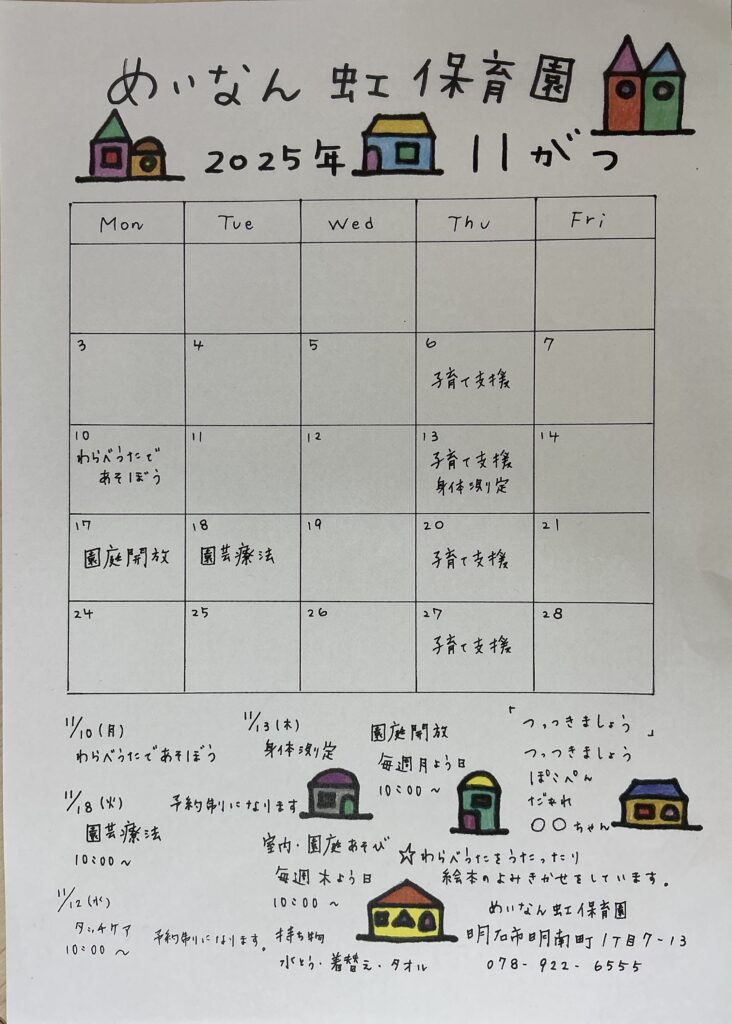 めいなん 虹 保育園
2025年 11がつ
Mon Tue Wed Thu Fri
3 4 5 6 7
子育て支援
10 11 12 13 14
わらべうたで
あそぼう
子育て支援
身体測定
17 18 19 20 21
園庭開放 園芸療法 子育て支援
24 25 26 27 28
子育て支援
11/10(月)
わらべうたであそぼう
11/13(木)
身体測定
園庭開放
毎週月よう日
10:00〜
「つっつきましょう」
つっつきましょう
ぽこぺん
だぁれ
○○ちゃん
11/18(火) 予約制になります
園芸療法
10:00〜
室内・園庭あそび
毎週木よう日
10:00〜
☆わらべうたをうたったり
絵本のよみきかせをしています。
11/12(水)
タッチケア
10:00〜 予約制になります。
持ち物
水とう・着替え・タオル
めいなん虹保育園
明石市明南町1丁目7-13
078-922-6555